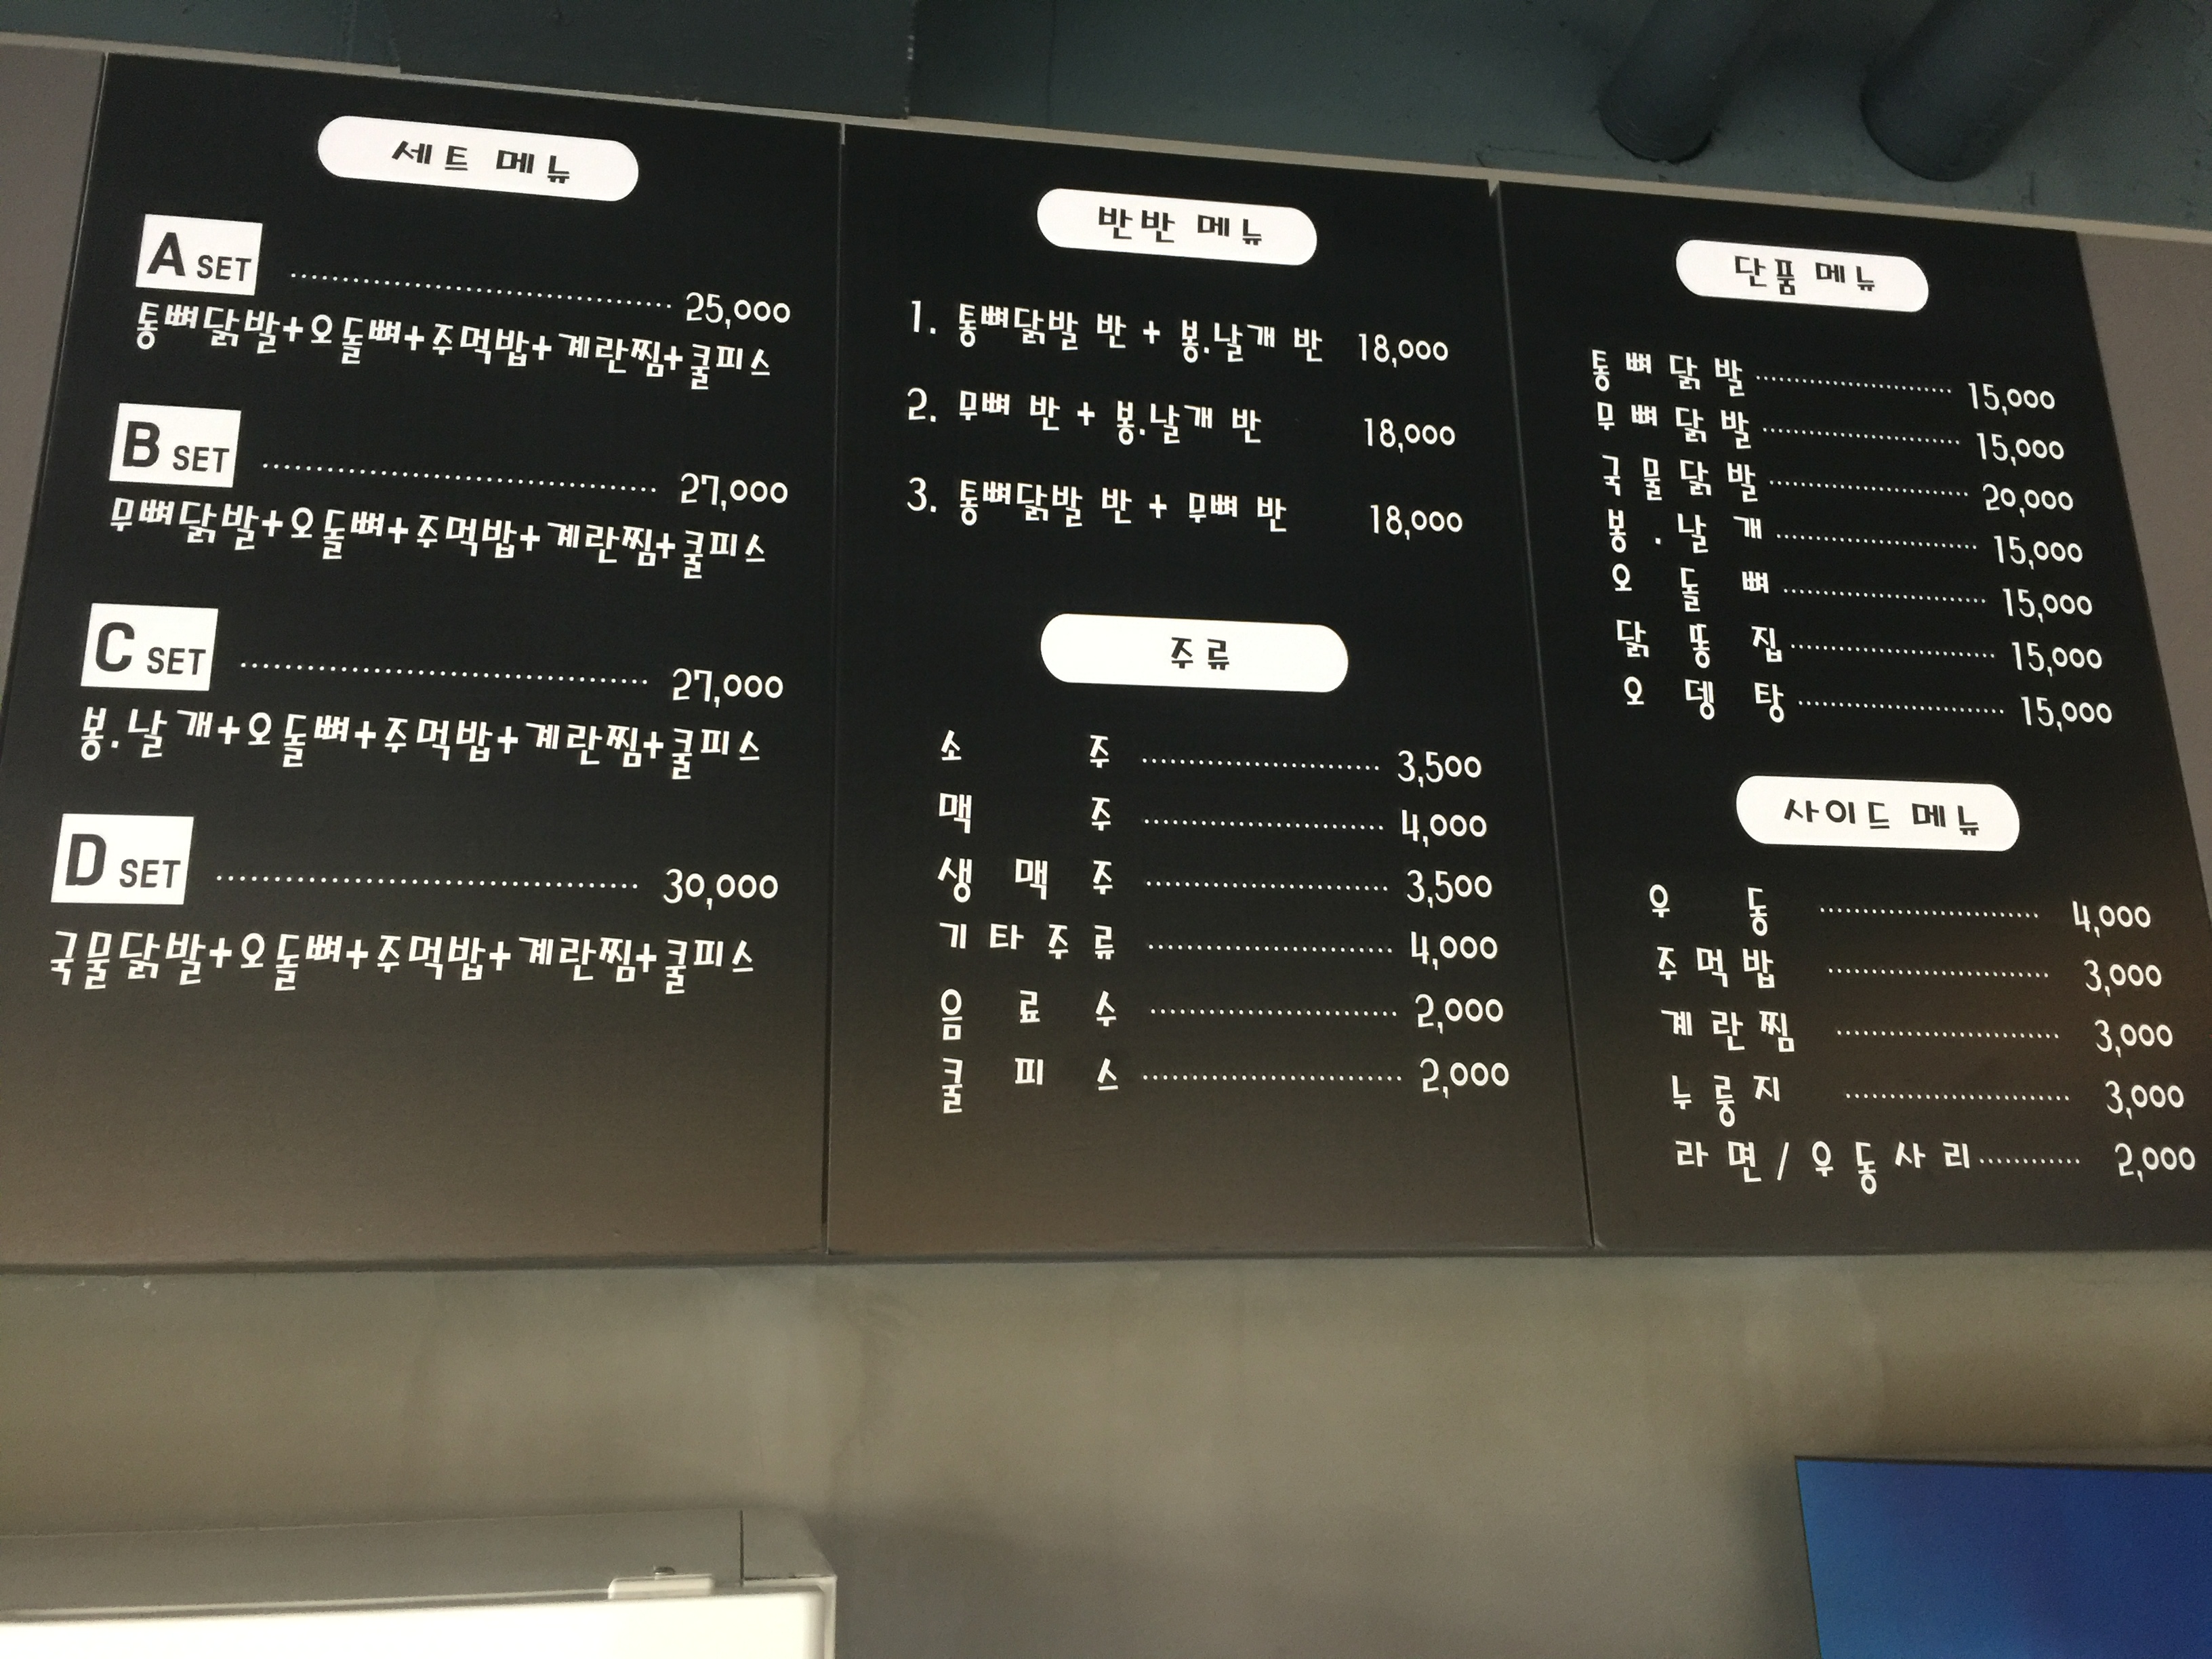 세트 메뉴
A SET 25,000
통뼈닭발+오돌뼈+주먹밥+계란찜+쿨피스
B SET 27,000
무뼈닭발+오돌뼈+주먹밥+계란찜+쿨피스
C SET 27,000
봉.날개+오돌뼈+주먹밥+계란찜+쿨피스
D SET 30,000
국물닭발+오돌뼈+주먹밥+계란찜+쿨피스
반반 메뉴
1. 통뼈닭발 반 + 봉.날개 반 18,000
2. 무뼈 반 + 봉.날개 반 18,000
3. 통뼈닭발 반 + 무뼈 반 18,000
주류
소주 3,500
맥주 4,000
생맥주 3,500
기타주류 4,000
음료수 2,000
쿨피스 2,000
단품 메뉴
통뼈닭발 15,000
무뼈닭발 15,000
국물닭발 20,000
봉.날개 15,000
오돌뼈 15,000
닭똥집 15,000
오뎅탕 15,000
사이드 메뉴
우동 4,000
주먹밥 3,000
계란찜 3,000
누룽지 3,000
라면/우동사리 2,000